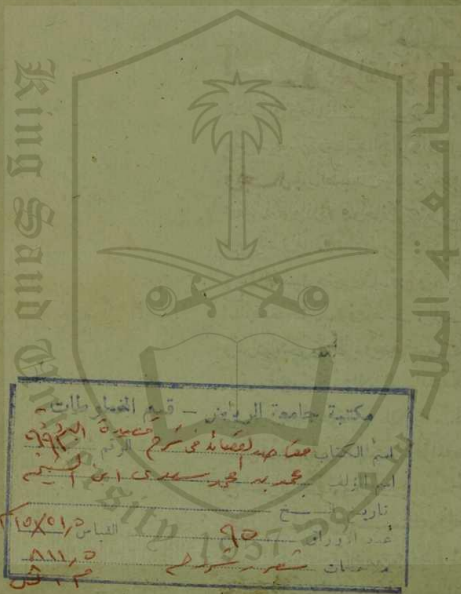 King Saud University
جامعة الملك سعود
1957
مكتبة جامعة الرياض - قسم المخطوطات
اسم الكتاب مقاصد القصائد في شرح قصيدة الرقم ٩٩٣
اسم المؤلف محمد بن محمد سعدى ابن
تاريخ النسخ
عدد الأوراق ٩٥ القياس ١٥٫٥×٢١
ملاحظات شعر - شروح ٨١١٫٥